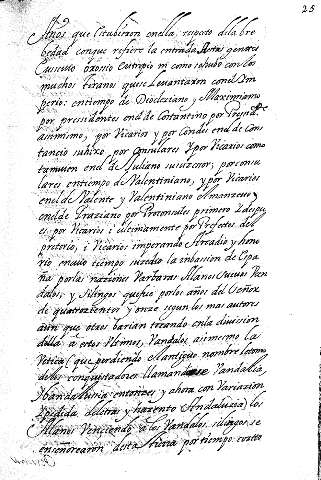 25
Años que estubieron en ella, respeto dela bre
bedad con que refiere la entrada destas genares
Eusevio orosio Eutropio ni como se hubo con los
muchos tiranos que se Levantaron con el Im
perio: en tiempo de Diocleziano y Maximiano
por presidentes en el de Costantino por Presidte.
asimismo, por Vicarios y por Condes en el de Con
stancio su hixo, por Consulares Y por Vicarios como
tambien en el de Juliano su suzesor, por consu
lares en tiempo de Valentiniano, y por Vicarios
en el de Valente y Valentiniano
en el de Graziano por Proconsules primero y despu
es por Vicarios i ultimamente por Prefetos del
pretorio, i Vicarios imperando Arcadio y hono
rio en cuio tiempo suzedio la inbassion de Espa
ña por las naziones Varbaras Alanos Suevos Van
dalos, y Silingos que fue por los años del Señor
de quatrozientos y onze segun los mas autores
aun que otros barian tocando en la division
della a estos Ultimos, Vandalos asimesmo la
Vetica (que perdiendo el antiguo nombre le tomo
de los conquistadores llamandose Vandalia,
Vbandalusia entonzes y ahora con Variazion
de letras y hazento Andaluzia) los
Alanos Venciendo a los Vandalos, silingos se
enseñorearon desta tierra por tiempo cuatro